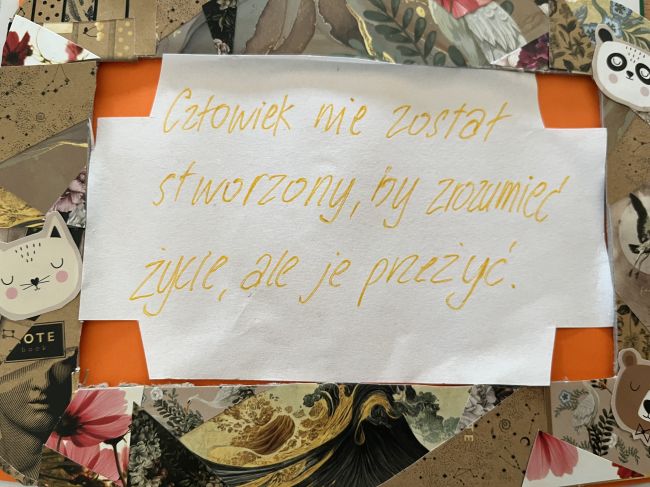 Człowiek nie został
stworzony, by zrozumieć
życie, ale je przeżyć.
OTE
book